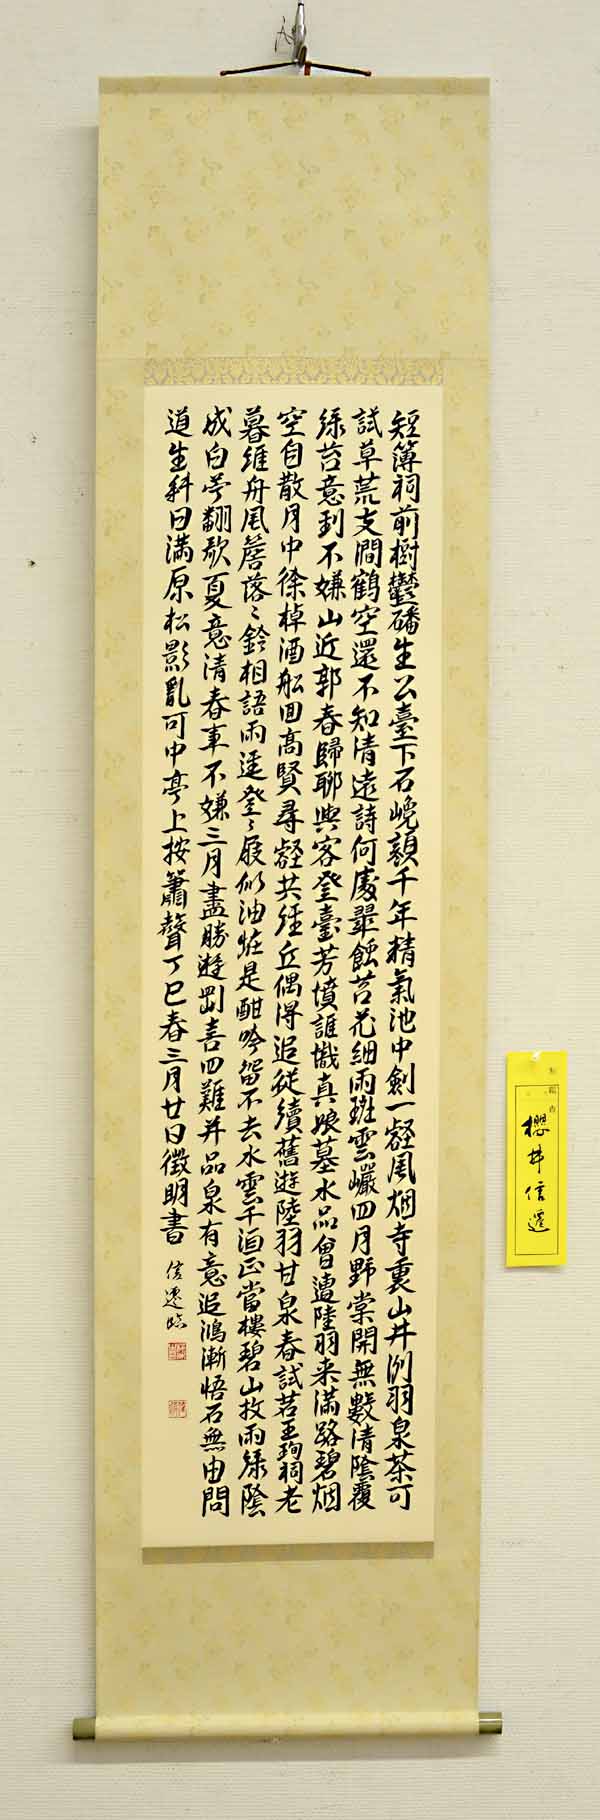 短簿祠前樹鬱蟠生公臺下石巉顏千年精氣池中劍一壑風烟寺裏山井冽羽泉茶可
試草荒支澗鶴空還不知清遠詩何處翠蝕苔花細雨斑雲巖四月野棠開無數清陰覆
綠苔意到不嫌山近郭春歸聊與客登臺芳墳誰識真娘墓水品曾遭陸羽来滿路碧烟
空自散月中徐棹酒船回高賢尋壑共經丘偶得追從續舊遊陸羽甘泉春試茗王珣祠老
暮維舟風簷落〻鈴相語雨逕登〻屐似油 是酣吟留不去水雲千頃正當樓碧山放雨綠陰
成白苧翻歌夏意清春事不嫌三月盡勝遊剛喜四難并品泉有意追鴻漸悟石無由問
道生斜日滿原松影亂可中亭上按簫聲丁巳春三月廿日徵明書 信遷臨
櫻井信遷